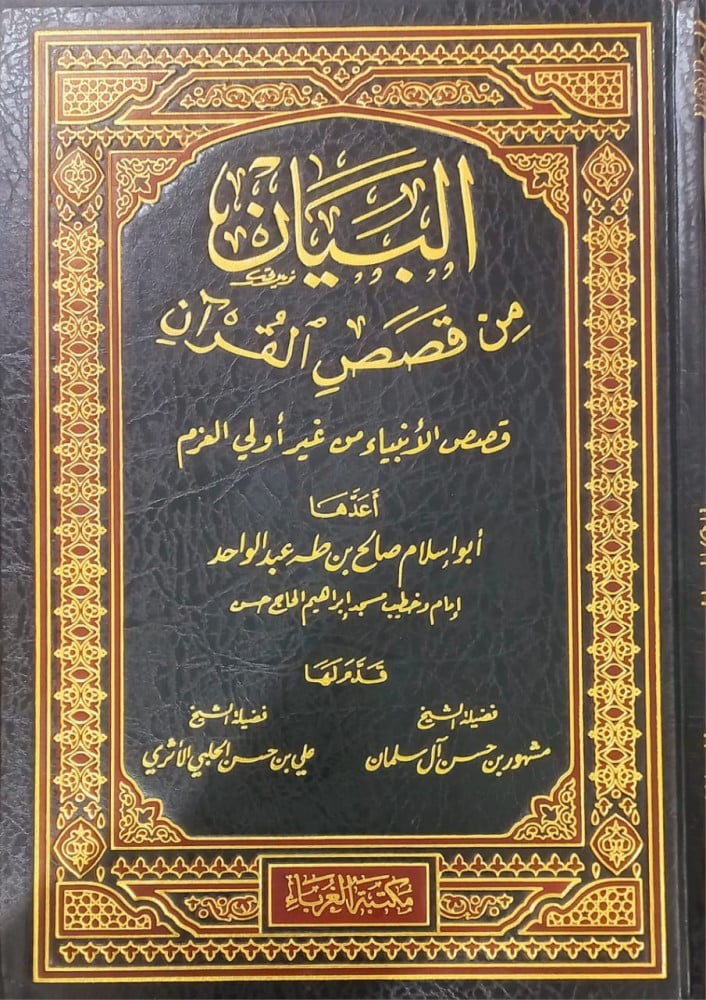 البَيَان
مِن قَصَصِ القُرْآنِ
قصص الأنبياء من غير أولي العزم
أَعَدَّهَا
أبو إسلام صالح بن طه عبد الواحد
إمام وخطيب مسجد إبراهيم الحاج حسن
قَدَّمَ لَهَا
فضيلة الشيخ
مشهور بن حسن آل سلمان
فضيلة الشيخ
علي بن حسن الحلبي الأثري
مكتبة الغرباء